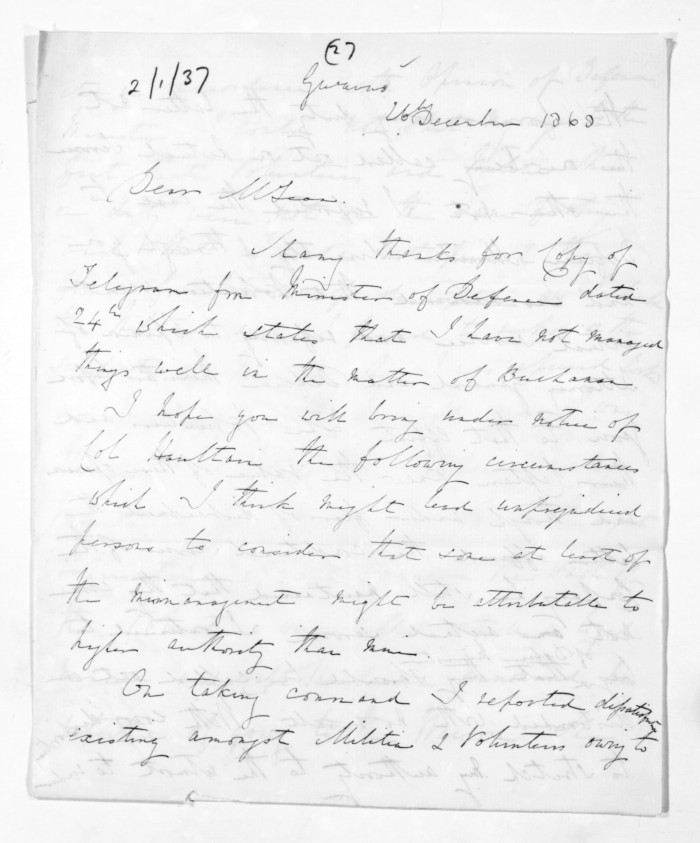 27
2/1/37
26th December 1868
Dear McLean.
Many thanks for Copy of
Telegram from Minister of Defence dated
24th which states that I have not managed
things well in the matter of Buchanan
I hope you will bring under notice of
Col Haultain the following circumstances
which I think might lead unprejudiced
persons to consider that some at least of
the mismanagement might be attributable to
higher authority than mine.
On taking command I reported
existing amongst Militia & Volunteers owing to